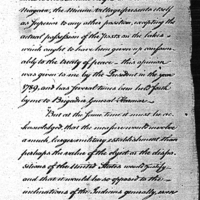 Niagara, the Miami village presents itself
as superior to any other position, excepting the
actual possession of the Posts on the lakes
which ought to have been given up conform-
ably to the treaty of peace — this opinion
was given to me by the President in the year
1789, and has several times been held forth
by me to Brigadier General Harmar.
But at the same time it must be ac-
knowledged, that the measure would involve
a much larger military establishment than
perhaps the value of the object or the dispo-
sitions of the United States would justify
and that it would be so opposed to the
inclinations of the Indians generally, even